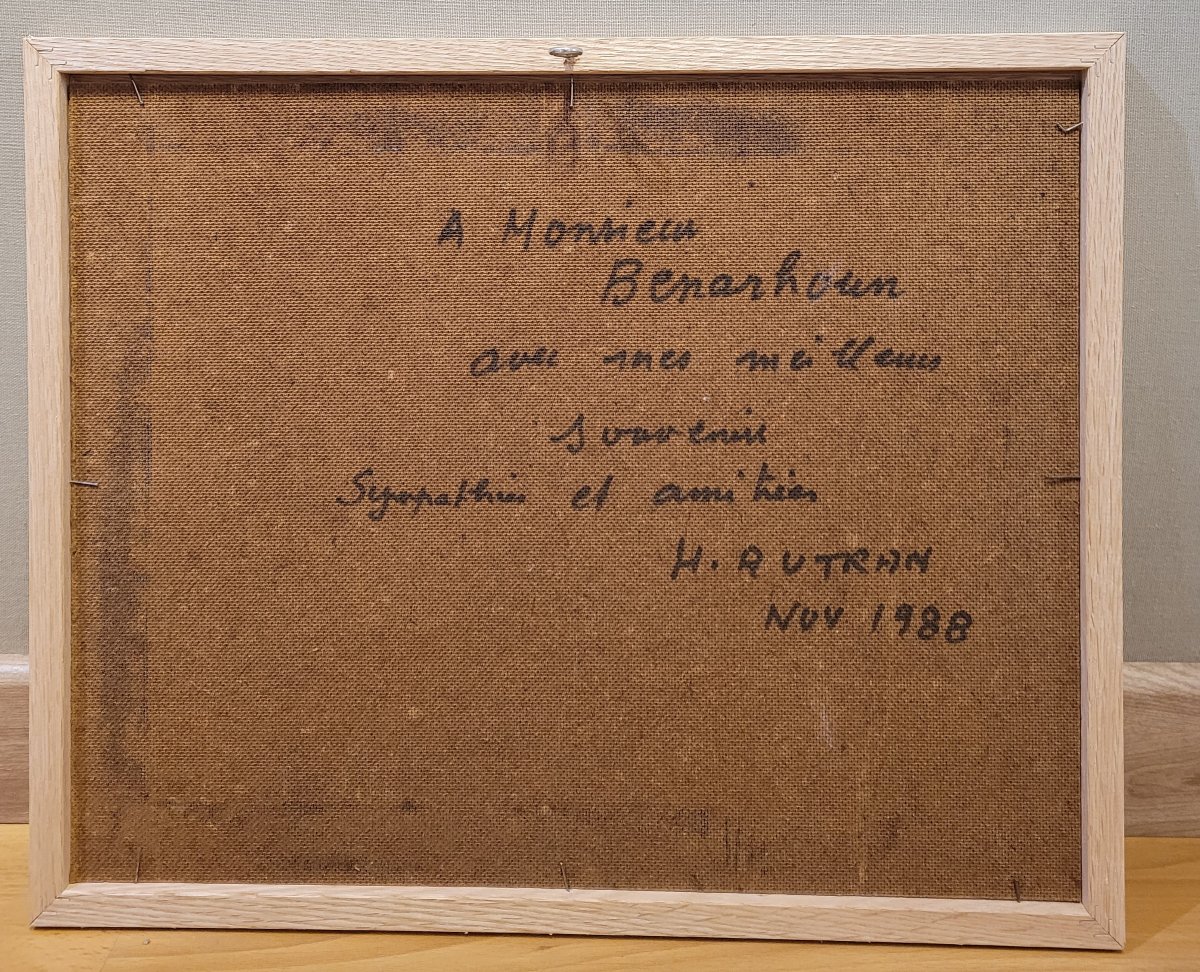 A Monsieur
Benarhoun
avec mes meilleurs
souvenirs
Sympathies et amitiés
H. AUTRAN
NOV 1988